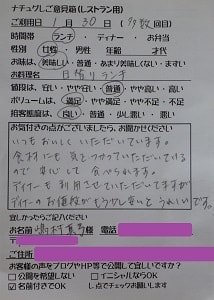 ナチュグレご意見箱(レストラン用)
ご利用日 1 月 30 日 (多数 回目)
時間帯 ランチ ・ ディナー ・ お弁当
(女性)・ 男性 年齢 才代
お味は (美味しい)・普通・あまり美味しくない・まずい
お料理名 日替りランチ
値段は、安い・やや安い・(普通)・やや高い・高い
ボリュームは (満足)・やや満足・普通・やや不足・不足
接客態度は、(良い)・やや良い・普通・少し悪い・悪い
お気付きの点がございましたら、お聞かせください
いつもおいしくいただいています。
食材にも気をつかっていただいている
ので安心して食べられます。
ディナーも利用させていただいてますが
ディナーのお値段がもう少し安いとうれしいです。
宜しかったらご記入ください
お名前 様 電話
〒
ご住所
お客様の声をブログやHP等で公開して宜しいですか?
□ 公開を希望しない □ イニシャルならOK
☑ 名前付きでOK し点でチェックお願いします